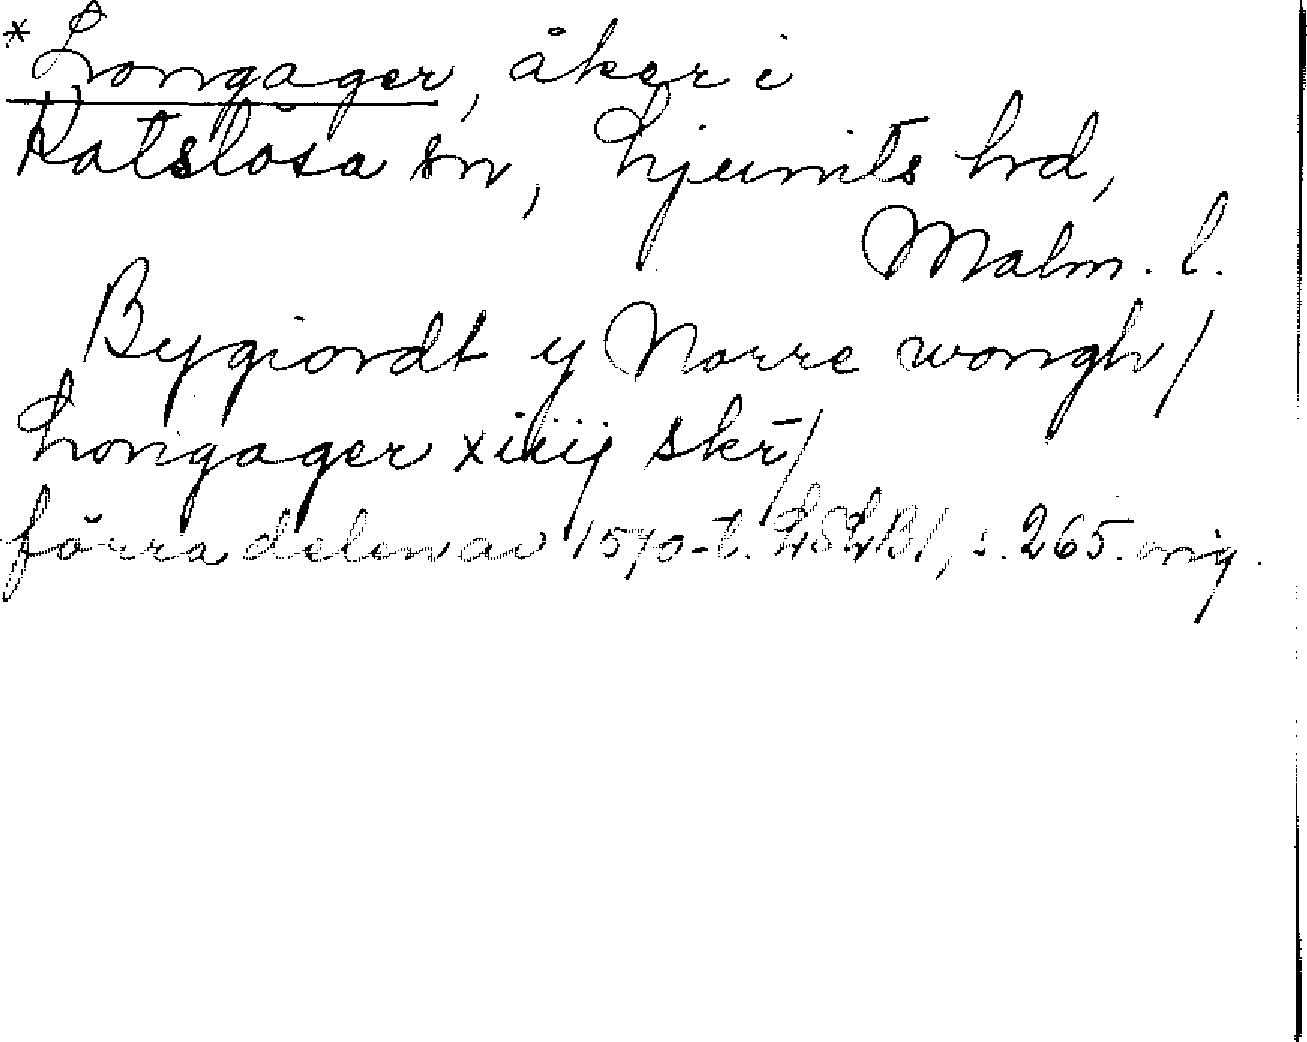 *Longager, åker i
Katslösa sn, Ljunits hrd,
Malm. l.
Bygiordt y Norre wongh/
Longager xiiij skr̄/
förra delen av 1570-t. LSLB1, s. 265. orig.